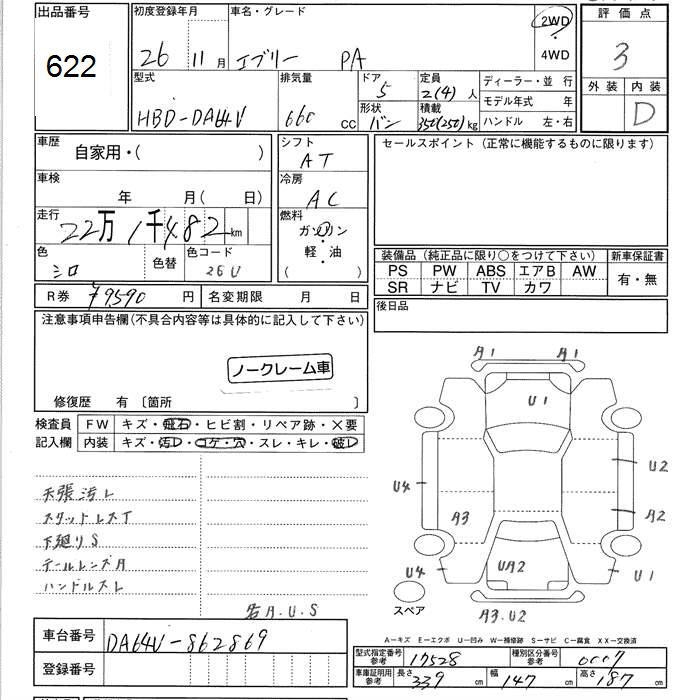 出品番号
622
初度登録年月
26 11 月
車名・グレード
エブリー PA
2WD
・
4WD
評価点
3
外装 内装
D
型式
HBD-DA64V
排気量
660 CC
ドア
5
形状
バン
定員
2(4)人
積載
350(250)kg
ディーラー・並行
モデル年式 年
ハンドル 左・右
車歴
自家用・( )
車検
年 月( 日)
走行
22万1千482km
色
シロ
色替
色コード
26U
シフト
AT
冷房
AC
燃料
ガソリン
軽・油
( )
セールスポイント(正常に機能するものに限ります)
装備品(純正品に限り○をつけて下さい)
PS PW ABS エアB AW
SR ナビ TV カワ
新車保証書
有・無
R券 ¥9590 円
名変期限 月 日
後日品
注意事項申告欄(不具合内容等は具体的に記入して下さい)
ノークレーム車
修復歴 有 〔箇所 〕
検査員
記入欄
FW キズ・飛石・ヒビ割・リペア跡・×要
内装 キズ・汚レ・コゲ・穴・スレ・キレ・破レ
天張汚レ
スタットレスT
下廻りS
テールレンズA
ハンドルスレ
若A.U.S
A1 A1
U1
U4
U2
A3
A2
U4
UA2
U1
スペア
A3.U2
A-キズ E-エクボ U-凹み W-補修跡 S-サビ C-腐食 XX-交換済
車台番号 DA64V-862869
登録番号
型式指定番号
参考
17528
種別区分番号
参考
0007
車庫証明用
参考
長さ 339 cm
幅 147 cm
高さ 187 cm